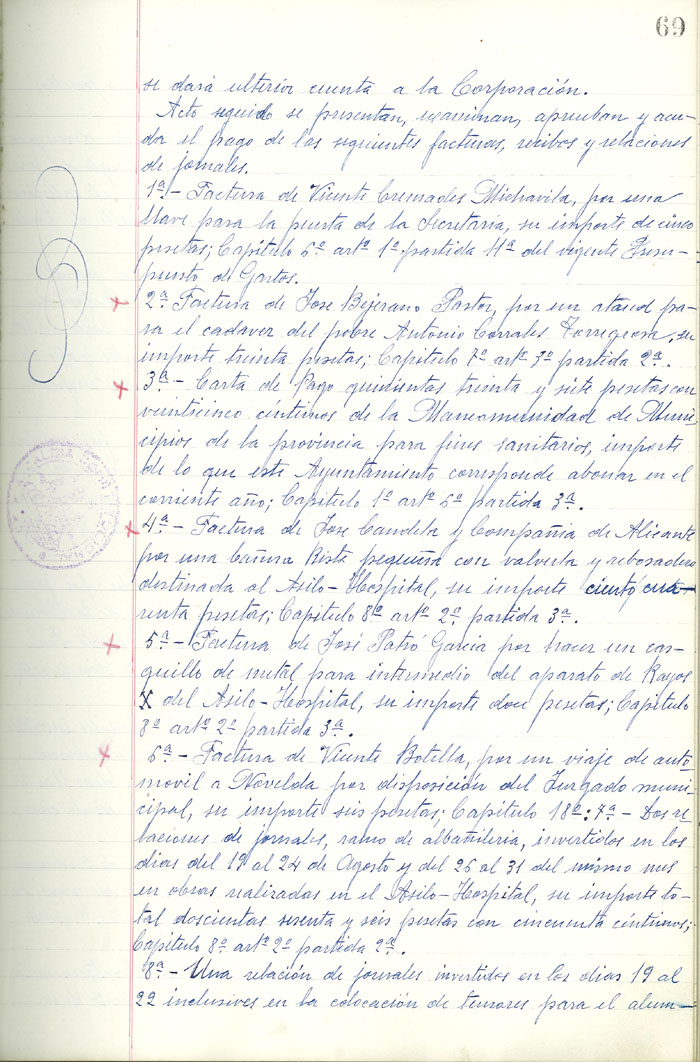 69
se dará ulterior cuenta a la Corporación.
Acto seguido se presentan, examinan, aprueban y acuer-
da el pago de las siguientes facturas, recibos y relaciones
de jornales.
1ª.- Factura de Vicente Cremades Michavila, por una
llave para la puerta de la Secretaría, su importe de cinco
pesetas; Capítulo 6º artº 1º partida 11ª del vigente Presu-
puesto de Gastos.
2ª. Factura de Jose Bejerano Pastor, por un ataud pa-
ra el cadaver del pobre Antonio Corrales Torregrosa, su
importe treinta pesetas; Capítulo 7º artº 3º partida 2ª.
3ª.- Carta de Pago quinientas treinta y siete pesetas con
veinticinco centimos de la Mancomunidad de Muni-
cipios de la provincia para fines sanitarios, importe
de lo que este Ayuntamiento corresponde abonar en el
corriente año; Capítulo 1º artº 6º partida 3ª.
4ª.- Factura de Jose Candela y Compañia de Alicante
por una pequeña con valvula y rebosadero
destinada al Asilo-Hospital, su importe ciento cua-
renta pesetas; Capítulo 8º artº 2º partida 3ª.
5ª.- Factura de José Patró Garcia por hacer un cas-
quillo de metal para intermedio del aparato de Rayos
X del Asilo-Hospital, su importe doce pesetas; Capítulo
8º artº 2º partida 3ª.
6ª.- Factura de Vicente Botella, por un viaje de auto-
movil a Novelda por disposición del Juzgado muni-
cipal, su importe seis pesetas; Capítulo 18º: 7ª.- Dos re-
laciones de jornales, ramo de albañileria, invertidos en los
dias del 19 al 24 de Agosto y del 26 al 31 del mismo mes
en obras realizadas en el Asilo-Hospital, su importe to-
tal doscientas sesenta y seis pesetas con cincuenta céntimos;
Capítulo 8º artº 2º partida 2ª.
8ª.- Una relación de jornales invertidos en los dias 19 al
22 inclusives en la colocación de tensores para el alum-